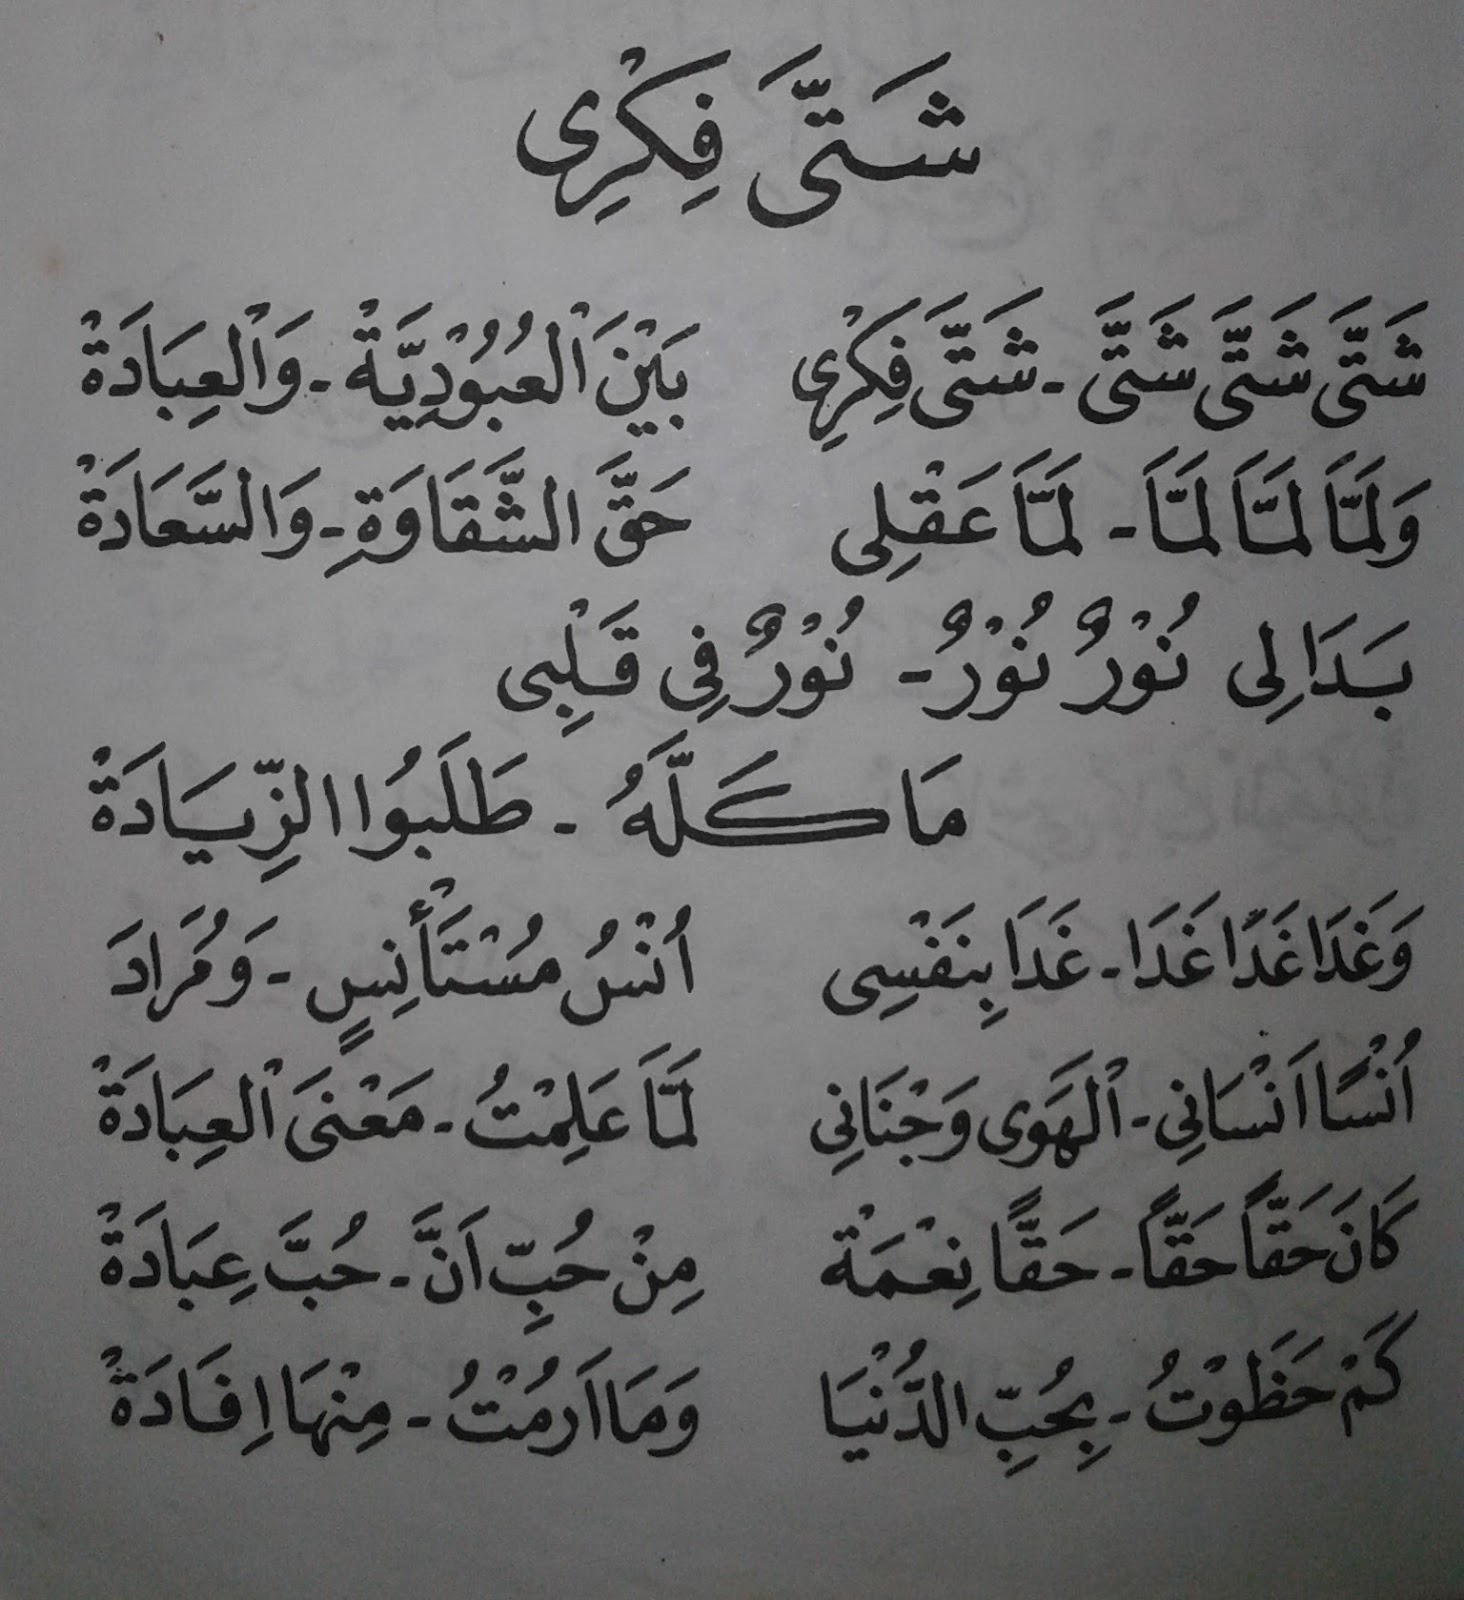 شَتَّى فِكْرِى
شَتَّى شَتَّى شَتَّى - شَتَّى فِكْرِى بَيْنَ الْعُبُوْدِيَّةْ - وَالْعِبَادَةْ
وَلَمَّا لَمَّا لَمَّا - لَمَّا عَقْلِى حَقَّ الشَّقَاوَةِ - وَالسَّعَادَةْ
بَدَا لِى نُوْرٌ نُوْرٌ - نُوْرٌ فِى قَلْبِى
مَا كَلَّهُ - طَلَبُوا الزِّيَادَةْ
وَغَدَا غَدًا غَدَا - غَدَا بِنَفْسِى اُنْسُ مُسْتَأْنِسٍ - وَمُرَادَ
اُنْسًا اَنْسَانِى - الْهَوَى وَجْنَانِى لَمَّا عَلِمْتُ - مَعْنَى الْعِبَادَةْ
كَانَ حَقًّا حَقًّا - حَقًّا نِعْمَةْ مِنْ حُبِّ اَنَّ - حُبَّ عِبَادَةْ
كَمْ حَظَوْتُ - بِحُبِّ الدُّنْيَا وَمَا اَرُمْتُ - مِنْهَا اِفَادَةْ